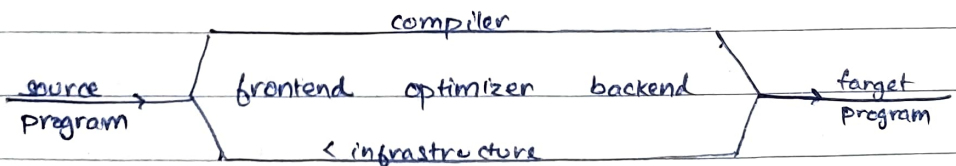 compiler
source frontend optimizer backend target
program program
< infrastructure